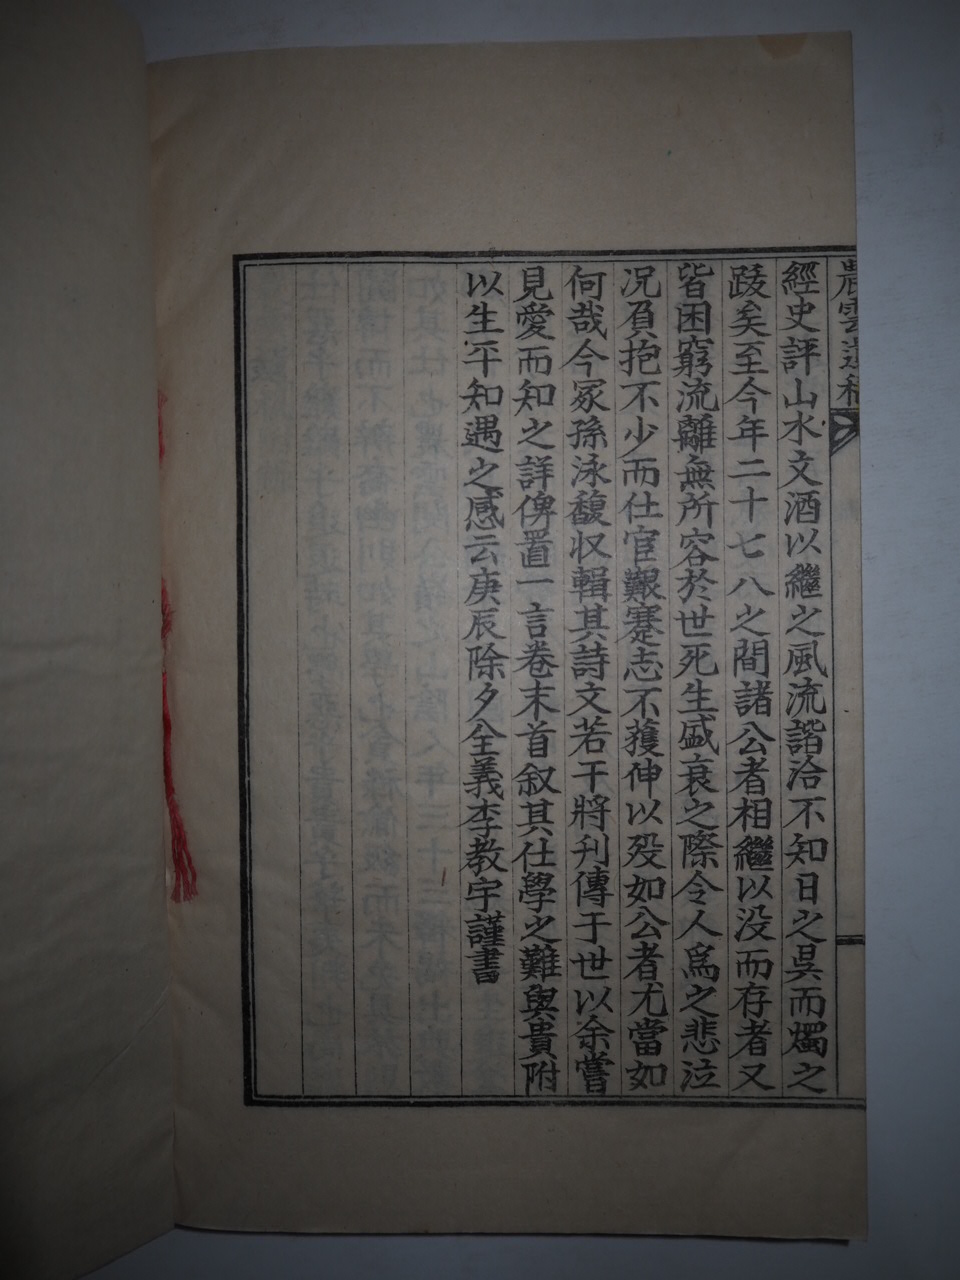 農雲遺稿
經史評山水文酒以繼之風流諧洽不知日之昃而燭之
跋矣至今年二十七八之間諸公者相繼以没而存者又
皆困窮流離無所容於世死生盛衰之際令人爲之悲泣
况負抱不少而仕宦艱蹇志不獲伸以歿如公者尤當如
何哉今冢孫泳馥収輯其詩文若干將刊傳于世以余嘗
見愛而知之詳俾置一言卷末首叙其仕學之難與貴附
以生平知遇之感云庚辰除夕全義李教宇謹書